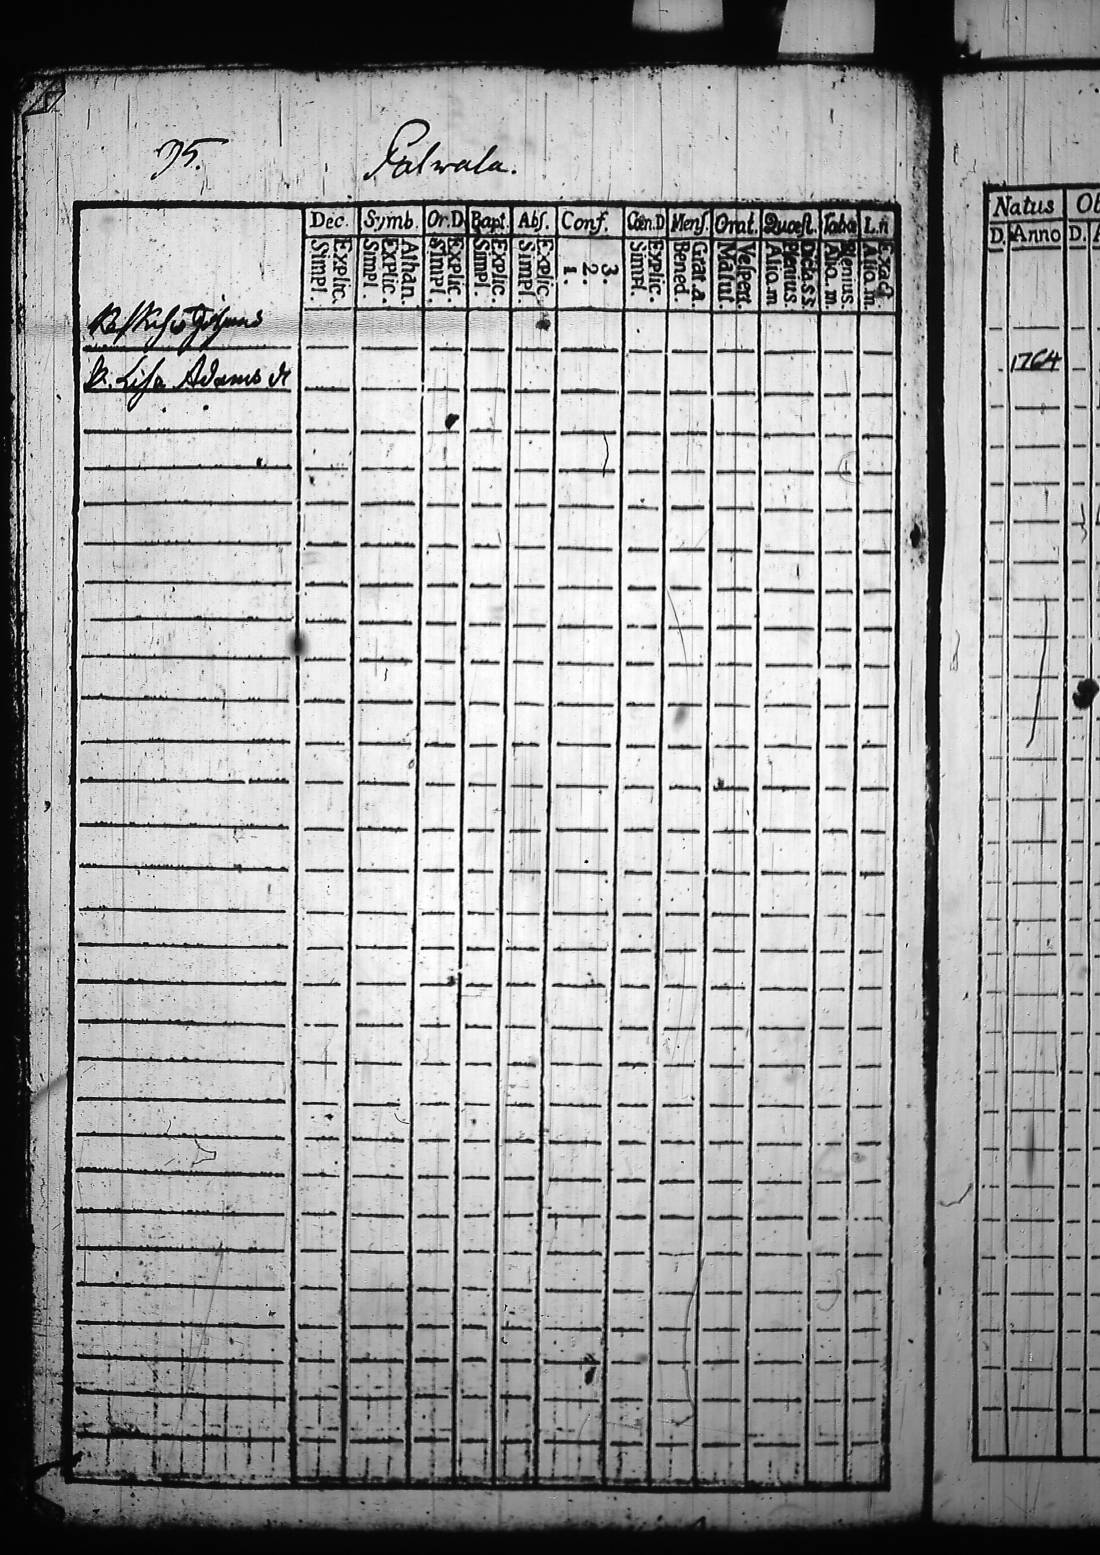 95.
Palwala.
Dec. Symb. Or. D. Bapt. Abs. Conf. Cœn. D. Mens. Orat. Quæst. Taba L. n
Simpl. Explic. Simpl. Explic. Athan. Simpl. Explic. Simpl. Explic. Simpl. Explic. 1. 2. 3. Simpl. Explic. Bened. Grat. a. Matut. Vespert. Alio. m Plenius. Dicta. s. s. Alio. m Plenius. Alio. m. Exact
Lisa Adams dr
Natus
D. Anno D.
1764